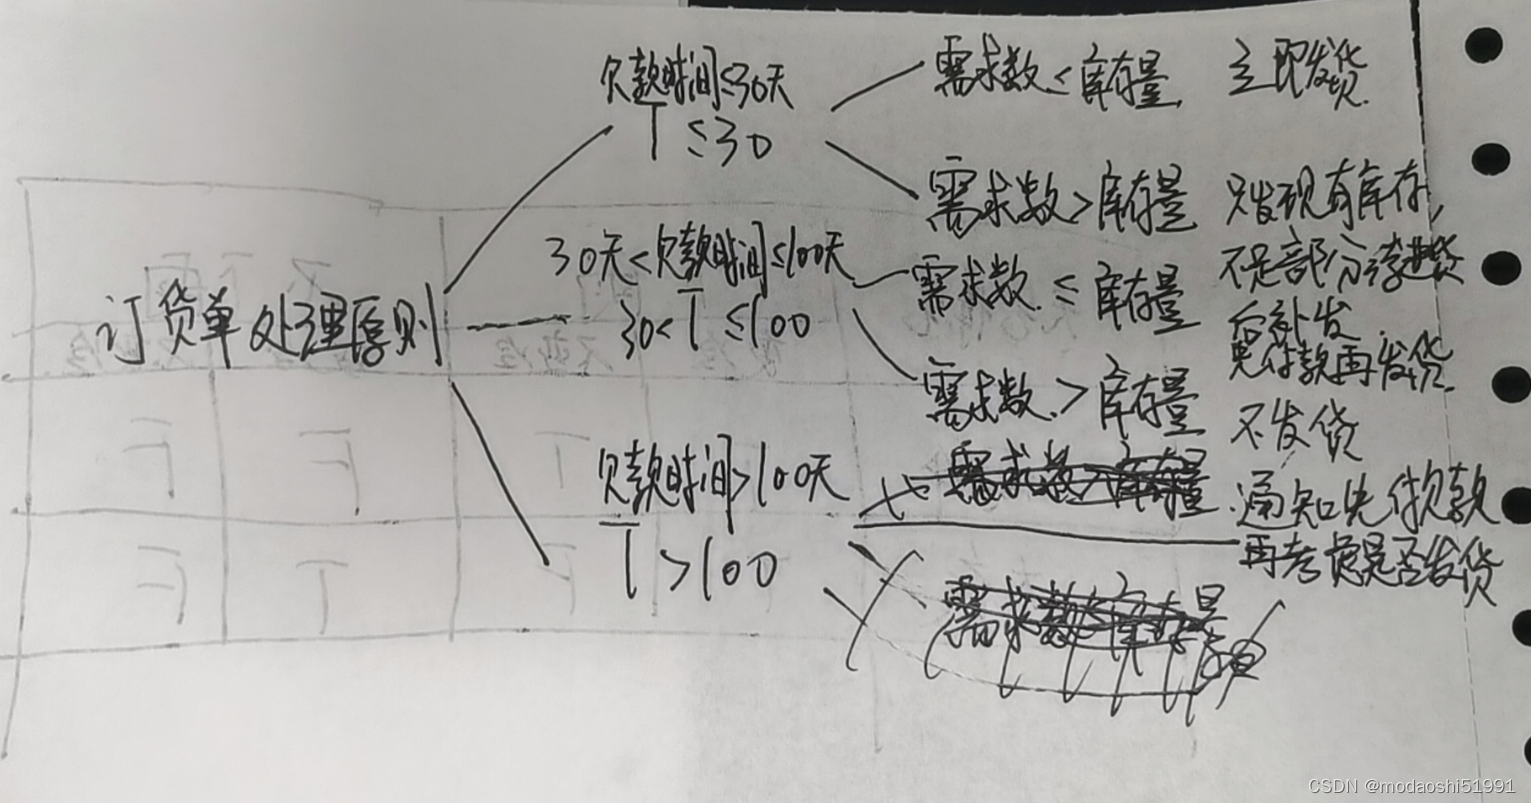 欠款时间≤30天
T ≤30
需求数≤库存量 立即发货
需求数>库存量 只发现有库存,
不足部分待进货
后补发
30天<欠款时间≤100天
30<T≤100
需求数≤库存量
先付款再发货
需求数>库存量 不发货
订货单处理原则
欠款时间>100天
T>100
通知先付欠款
再考虑是否发货
CSDN @modaoshi51991